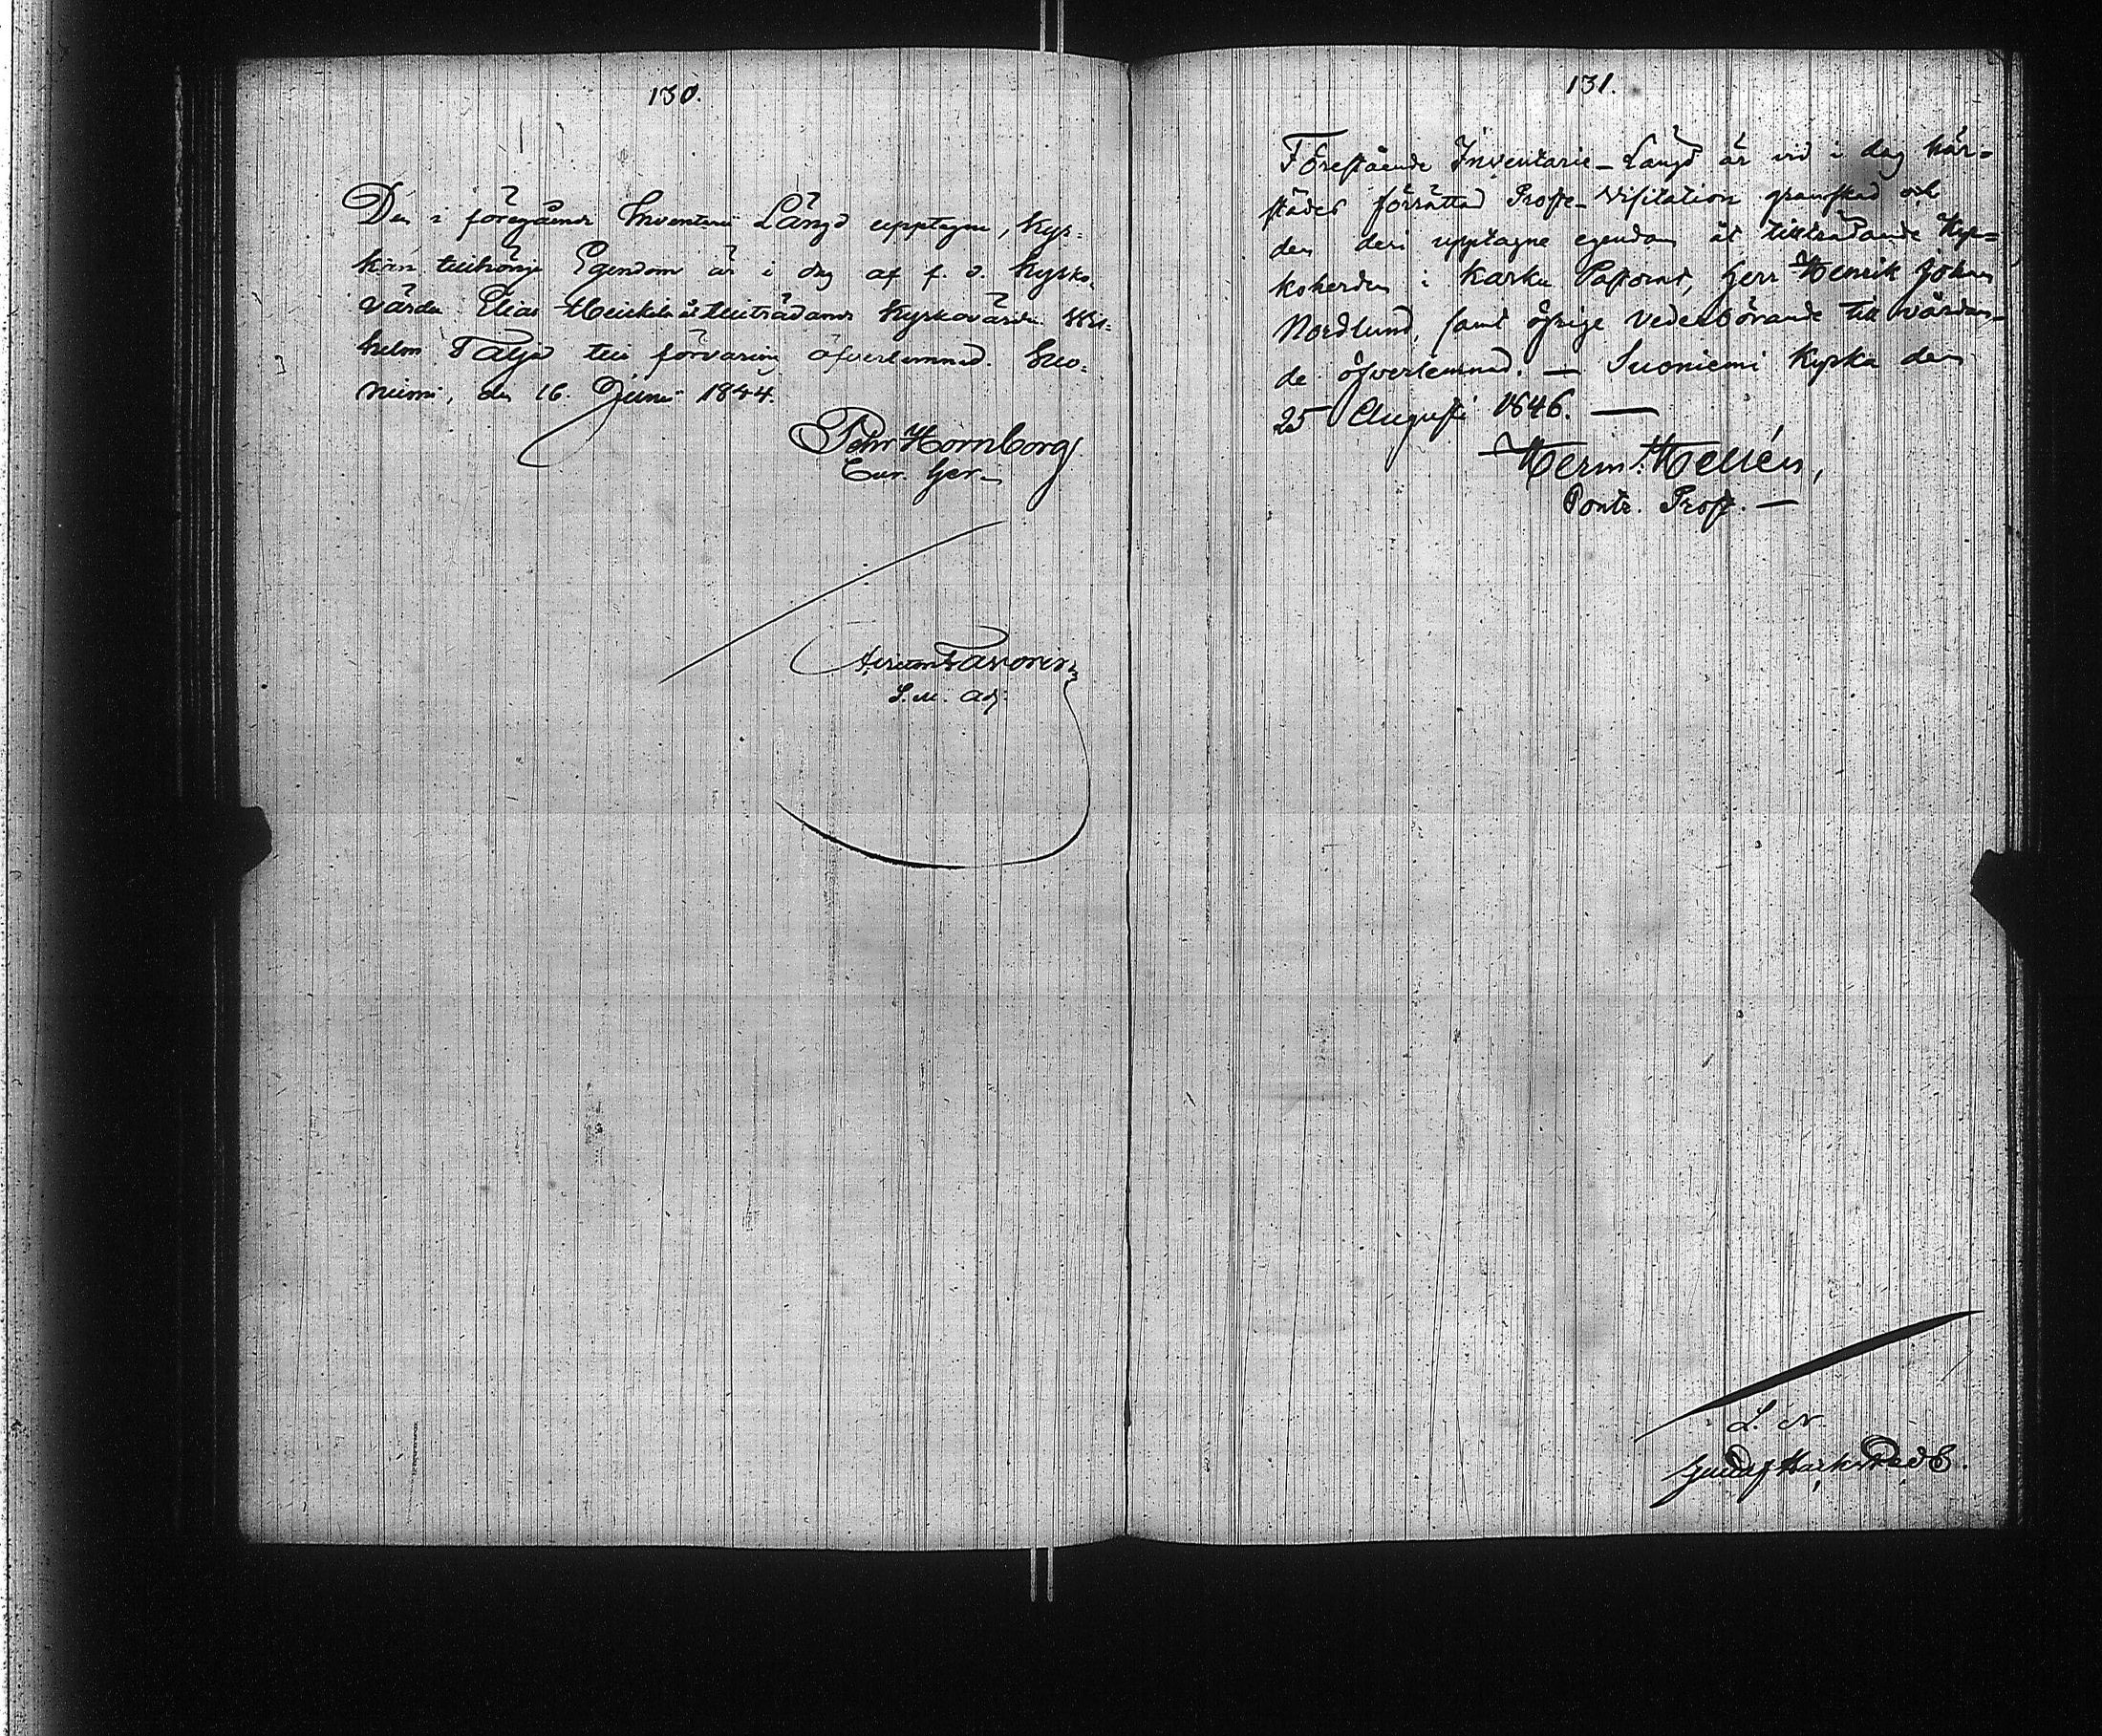 130.
Den i föregående Inventarii Längd upptagne, Kyr-
kan tillhörige Egendom är i dag af f. d. Kyrko-
värden Elias Heickelä åt tillträdande Kyrkovärden Wil-
helm Taljo till förvaring öfverlemnad. Suo-
niemi, den 16. Junii 1844.
Pehr Hornborg
Cur. Ger.
Favorin
S. M. Adj.
131.
Förestående Inventarie-Längd är vid i dag här-
städes förrättad Prosts-Visitation granskad och
den deri upptagne egendom åt tillträdande Kyr-
koherden i Karku Pastorat, Herr Henrik Johan
Nordlund, samt öfrige Vederbörande till vårdan-
de öfverlemnad. — Suoniemi Kyrka den
25 Augusti 1846. —
Herm: Hellén,
Contr. Prost. —
L. N
Gustaf